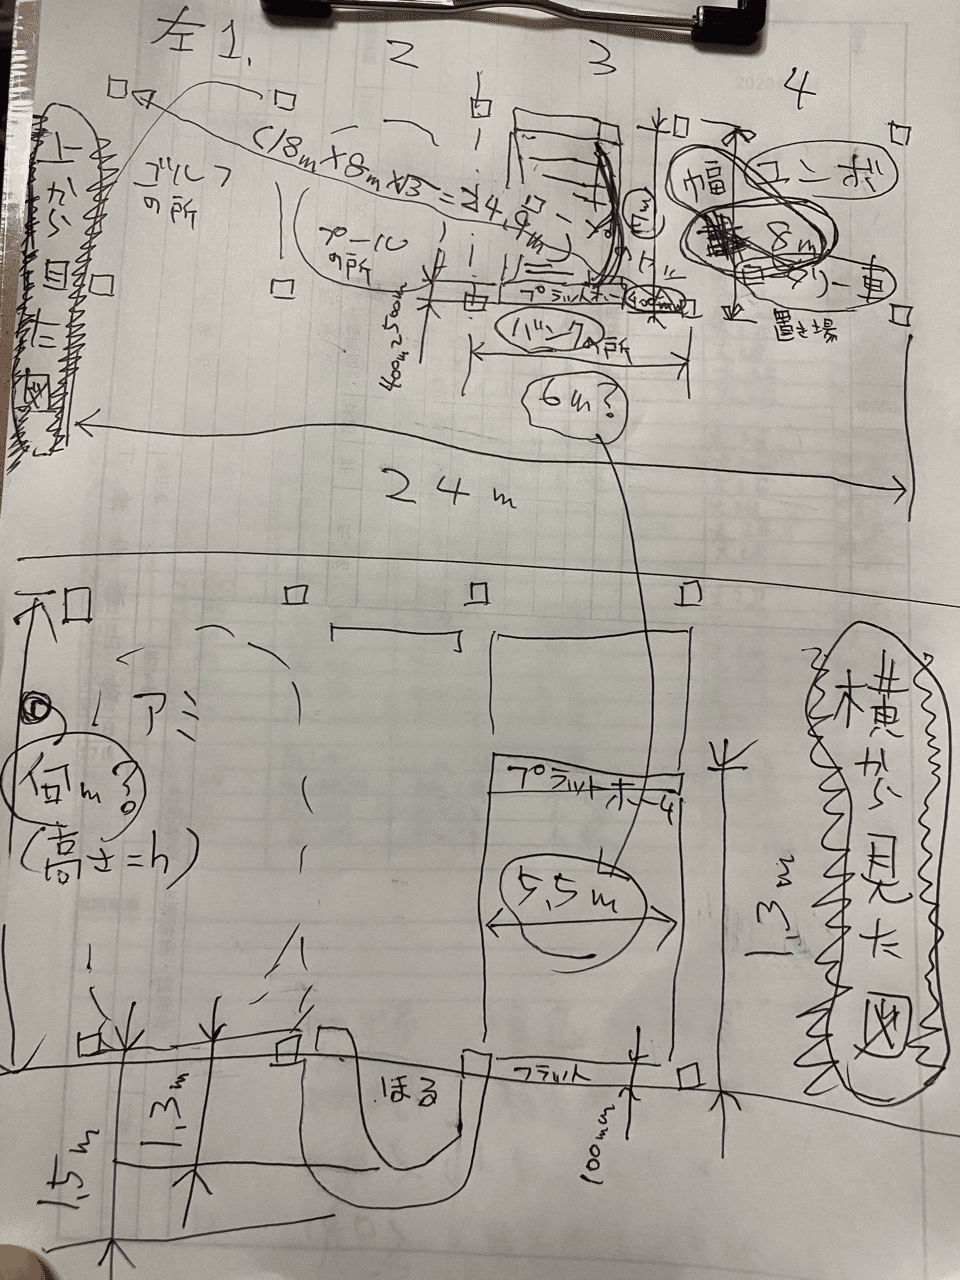 左1.
2
3
4
上から見た図
ゴルフ
の所
(18m×8m×√3=24.9m)
プールの所
7m
幅
8m
ユンボ
置き場
プラットホーム
400mm
バンクの所
6m?
24m
横から見た図
何m?
(高さ=h)
プラットホーム
5,5m
1,3m
ほる
フラット
100mm
1,3m
1,5m